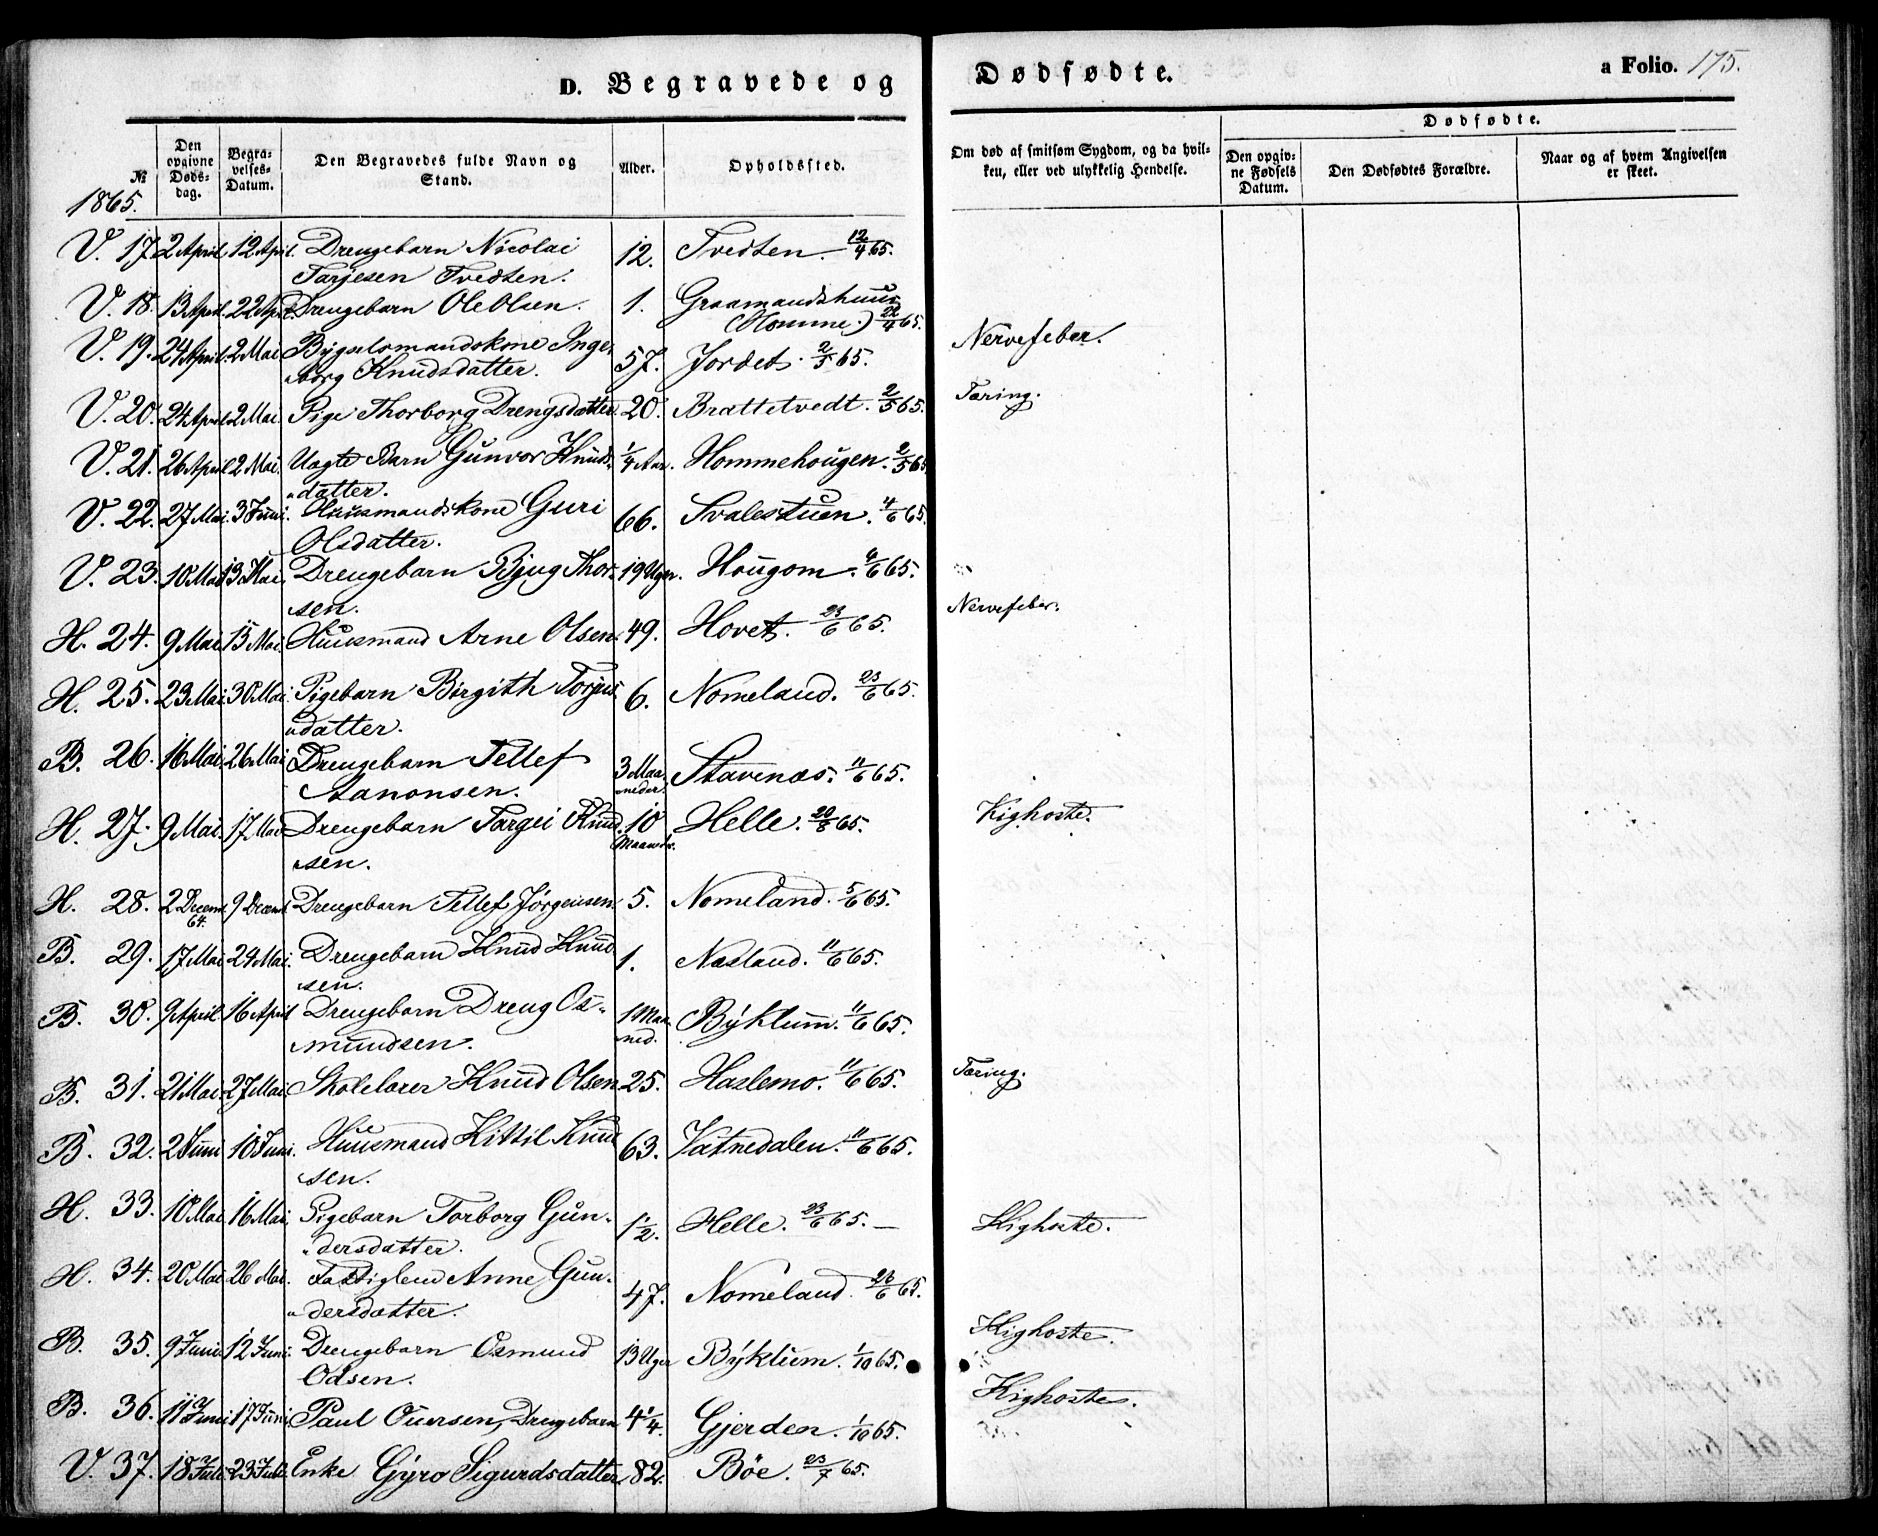 D. Begravede og Dødfødte. a Folio. 175.
Dødfødte.
№ Den opgivne Døds-dag. Begra-velses-Datum. Den Begravedes fulde Navn og Stand. Alder. Opholdssted. Om død af smitsom Sygdom, og da hvil-ken, eller ved ulykkelig Hendelse. Den opgiv-ne Fødsels Datum. Den Dødfødtes Forældre. Naar og af hvem Angivelsen er skeet.
1865.
V. 17. 2 April 12 April. Drengebarn Nicolai 12. Tvedten. 12/4 65.
Tarjesen Tvedten.
V. 18. 13 April. 22 Apr. Drengebarn Ole Olsen. 1. Graamandshuus
(Homme.) 22/4 65.
V. 19. 24 April. 2 Mai Bygselsmandskone Inge- 57. Jordet. 2/5 65. Nervefeber.
borg Knudsdatter.
V. 20. 24 April 2 Mai. Pige Thorborg Drengsdatter 20. Brattetvedt. 2/5 65. Tæring.
V. 21. 26 April 2 Mai. Uægte Barn Gunvor Knuds- 1/4 Aar. Hommehougen. 2/5 65
datter.
V. 22. 27 Mai. 3 Juni. Huusmandskone Guri 66. Svalestuen. 4/6 65.
Olsdatter.
V. 23. 10 Mai 13 Mai. Drengebarn Bjug Thor- 19 Uger. Hougom. 4/6 65.
sen.
H. 24. 9 Mai 15 Mai. Huusmand Arne Olsen. 49. Hovet. 23/6 65. Nervefeber.
H. 25. 23 Mai. 30 Mai. Pigebarn Birgith Torjus- 6. Nomeland. 23/6 65.
datter.
B. 26. 16 Mai. 26 Mai Drengebarn Tellef 3 Maa-neder. Stavenæs. 11/6 65.
Aanonsen.
H. 27. 9 Mai. 17 Mai Drengebarn Targei Knud- 10 Maaneder. Helle. 20/6 65. Kighoste.
sen.
H. 28. 2 Decemb. 64. 9 Decemb. Drengebarn Tellef Jørgensen. 5. Nomeland. 5/6 65.
B. 29. 17 Mai 24 Mai. Drengebarn Knud Knud- 1. Næsland. 11/6 65.
sen.
B. 30. 9 April 16 April Drengebarn Dreng Os- 1 Maa-ned. Býklum. 11/6 65.
mundsen.
B. 31. 21 Mai. 27 Mai. Skolelærer Knud Olsen 25. Haslemo. 11/6 65. Tæring.
B. 32. 2 Juni 10 Juni. Huusmand Kittil Knud- 63. Vatnedalen. 11/6 65.
sen.
H. 33. 10 Mai 16 Mai. Pigebarn Torborg Gun- 1 1/2. Helle. 23/6 65. — Kighoste.
dersdatter.
H. 34. 20 Mai 26 Mai. Fattiglem Anne Gun- 47. Nomeland. 23/6 65.
dersdatter.
B. 35. 9 Juni 12 Juni. Drengebarn Osmund 13 Uger Býklum. 1/10 65. Kighoste.
Odsen.
B. 36. 11 Juni 17 Juni Paul Ouersen, Drengebarn 4 1/4. Gjerden. 1/10 65. Kighoste.
V. 37. 18 Juli 23 Juli. Enke Gyro Sigurdsdatter 82. Bøe. 23/7 65.